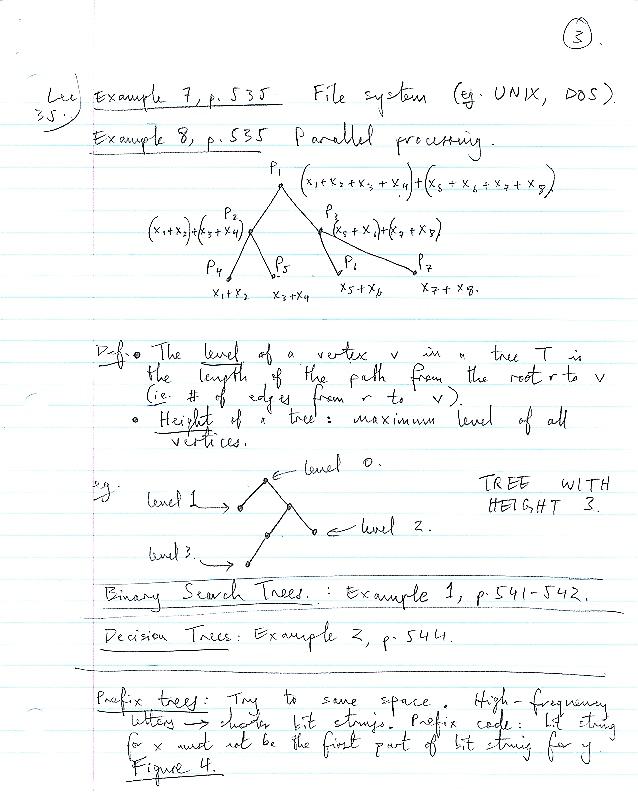 3.
Lec 35.) Example 7, p. 535 File system (eg. UNIX, DOS).
Example 8, p. 535 Parallel processing.
P1 (x1+x2+x3+x4)+(x5+x6+x7+x8)
(x1+x2)+(x3+x4) P2 P3 (x5+x6)+(x7+x8)
P4 P5 P6 P7
x1+x2 x3+x4 x5+x6 x7+x8.
Def. • The level of a vertex v in a tree T is
the length of the path from the root r to v
(ie. # of edges from r to v).
• Height of a tree: maximum level of all
vertices.
eg. level 0.
level 1 TREE WITH
HEIGHT 3.
level 2.
level 3.
Binary Search Trees.: Example 1, p. 541-542.
Decision Trees: Example 2, p. 544.
Prefix trees: Try to save space. High-frequency
letters → shorter bit strings. Prefix code: bit string
for x must not be the first part of bit string for y.
Figure 4.